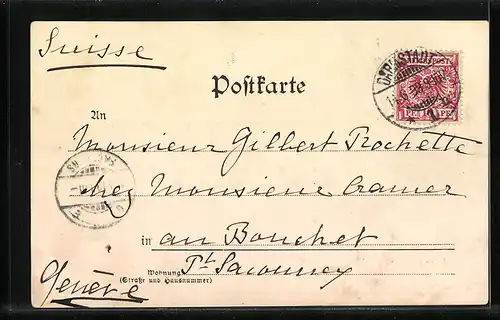 Suisse
DARMSTADT
Postkarte
An
Monsieur Gilbert Rochette
chez Monsieur Cramer
in au Bouchet
Pt. Saconnex
Wohnung
(Straße und Hausnummer)
Genève